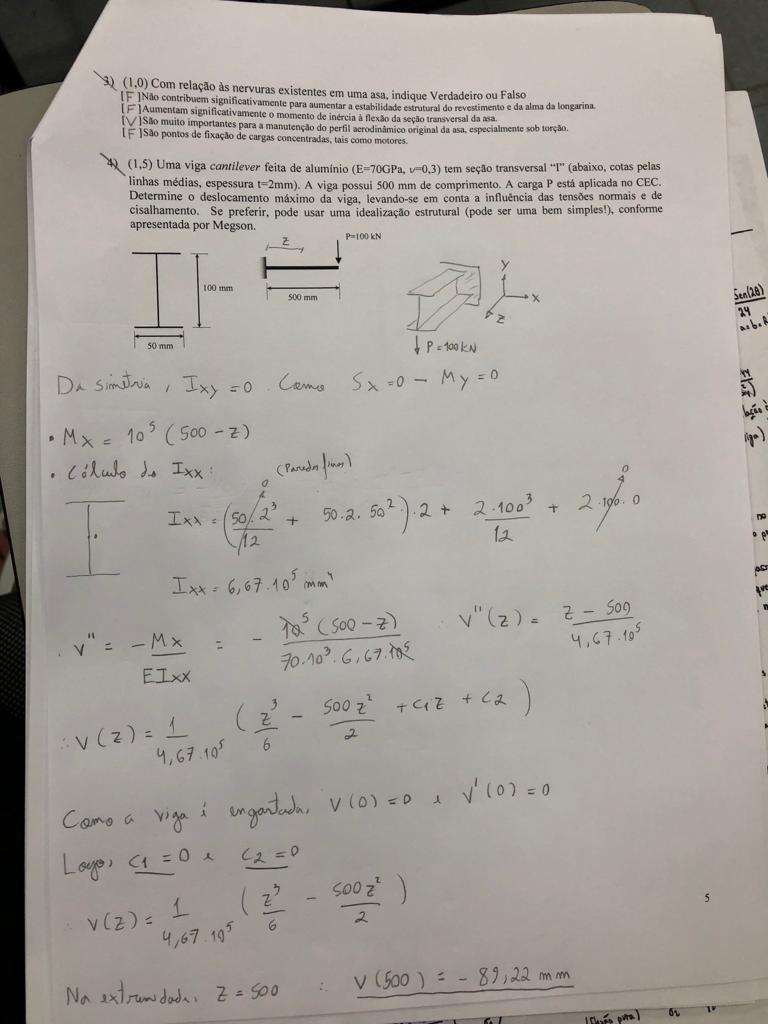 3) (1,0) Com relação às nervuras existentes em uma asa, indique Verdadeiro ou Falso
[F]Não contribuem significativamente para aumentar a estabilidade estrutural do revestimento e da alma da longarina.
[F]Aumentam significativamente o momento de inércia à flexão da seção transversal da asa.
[V]São muito importantes para a manutenção do perfil aerodinâmico original da asa, especialmente sob torção.
[F]São pontos de fixação de cargas concentradas, tais como motores.
4) (1,5) Uma viga cantilever feita de alumínio (E=70GPa, ν=0,3) tem seção transversal “I” (abaixo, cotas pelas
linhas médias, espessura t=2mm). A viga possui 500 mm de comprimento. A carga P está aplicada no CEC.
Determine o deslocamento máximo da viga, levando-se em conta a influência das tensões normais e de
cisalhamento. Se preferir, pode usar uma idealização estrutural (pode ser uma bem simples!), conforme
apresentada por Megson.
z
P=100 kN
100 mm
500 mm
50 mm
Y
X
Z
P = 100 kN
Da simetria, Ixy = 0. Como Sx = 0 - My = 0
• Mx = 10^5 (500 - z)
• Cálculo do Ixx: (Paredes finas)
Ixx = (50.2^3/12 + 50.2.50^2).2 + 2.100^3/12 + 2.100.0
0
0
Ixx = 6,67.10^5 mm^4
. v'' = -Mx/EIxx = - 10^5 (500 - z)/70.10^3.6,67.10^5 ∴ v''(z) = z - 500/4,67.10^5
∴ v(z) = 1/4,67.10^5 (z^3/6 - 500z^2/2 + c1z + c2)
Como a viga é engastada, v(0) = 0 e v'(0) = 0
Logo, c1 = 0 e c2 = 0
∴ v(z) = 1/4,67.10^5 (z^3/6 - 500z^2/2)
5
Na extremidade, z = 500 ∴ v(500) = - 89,22 mm
Sen(2θ)
24